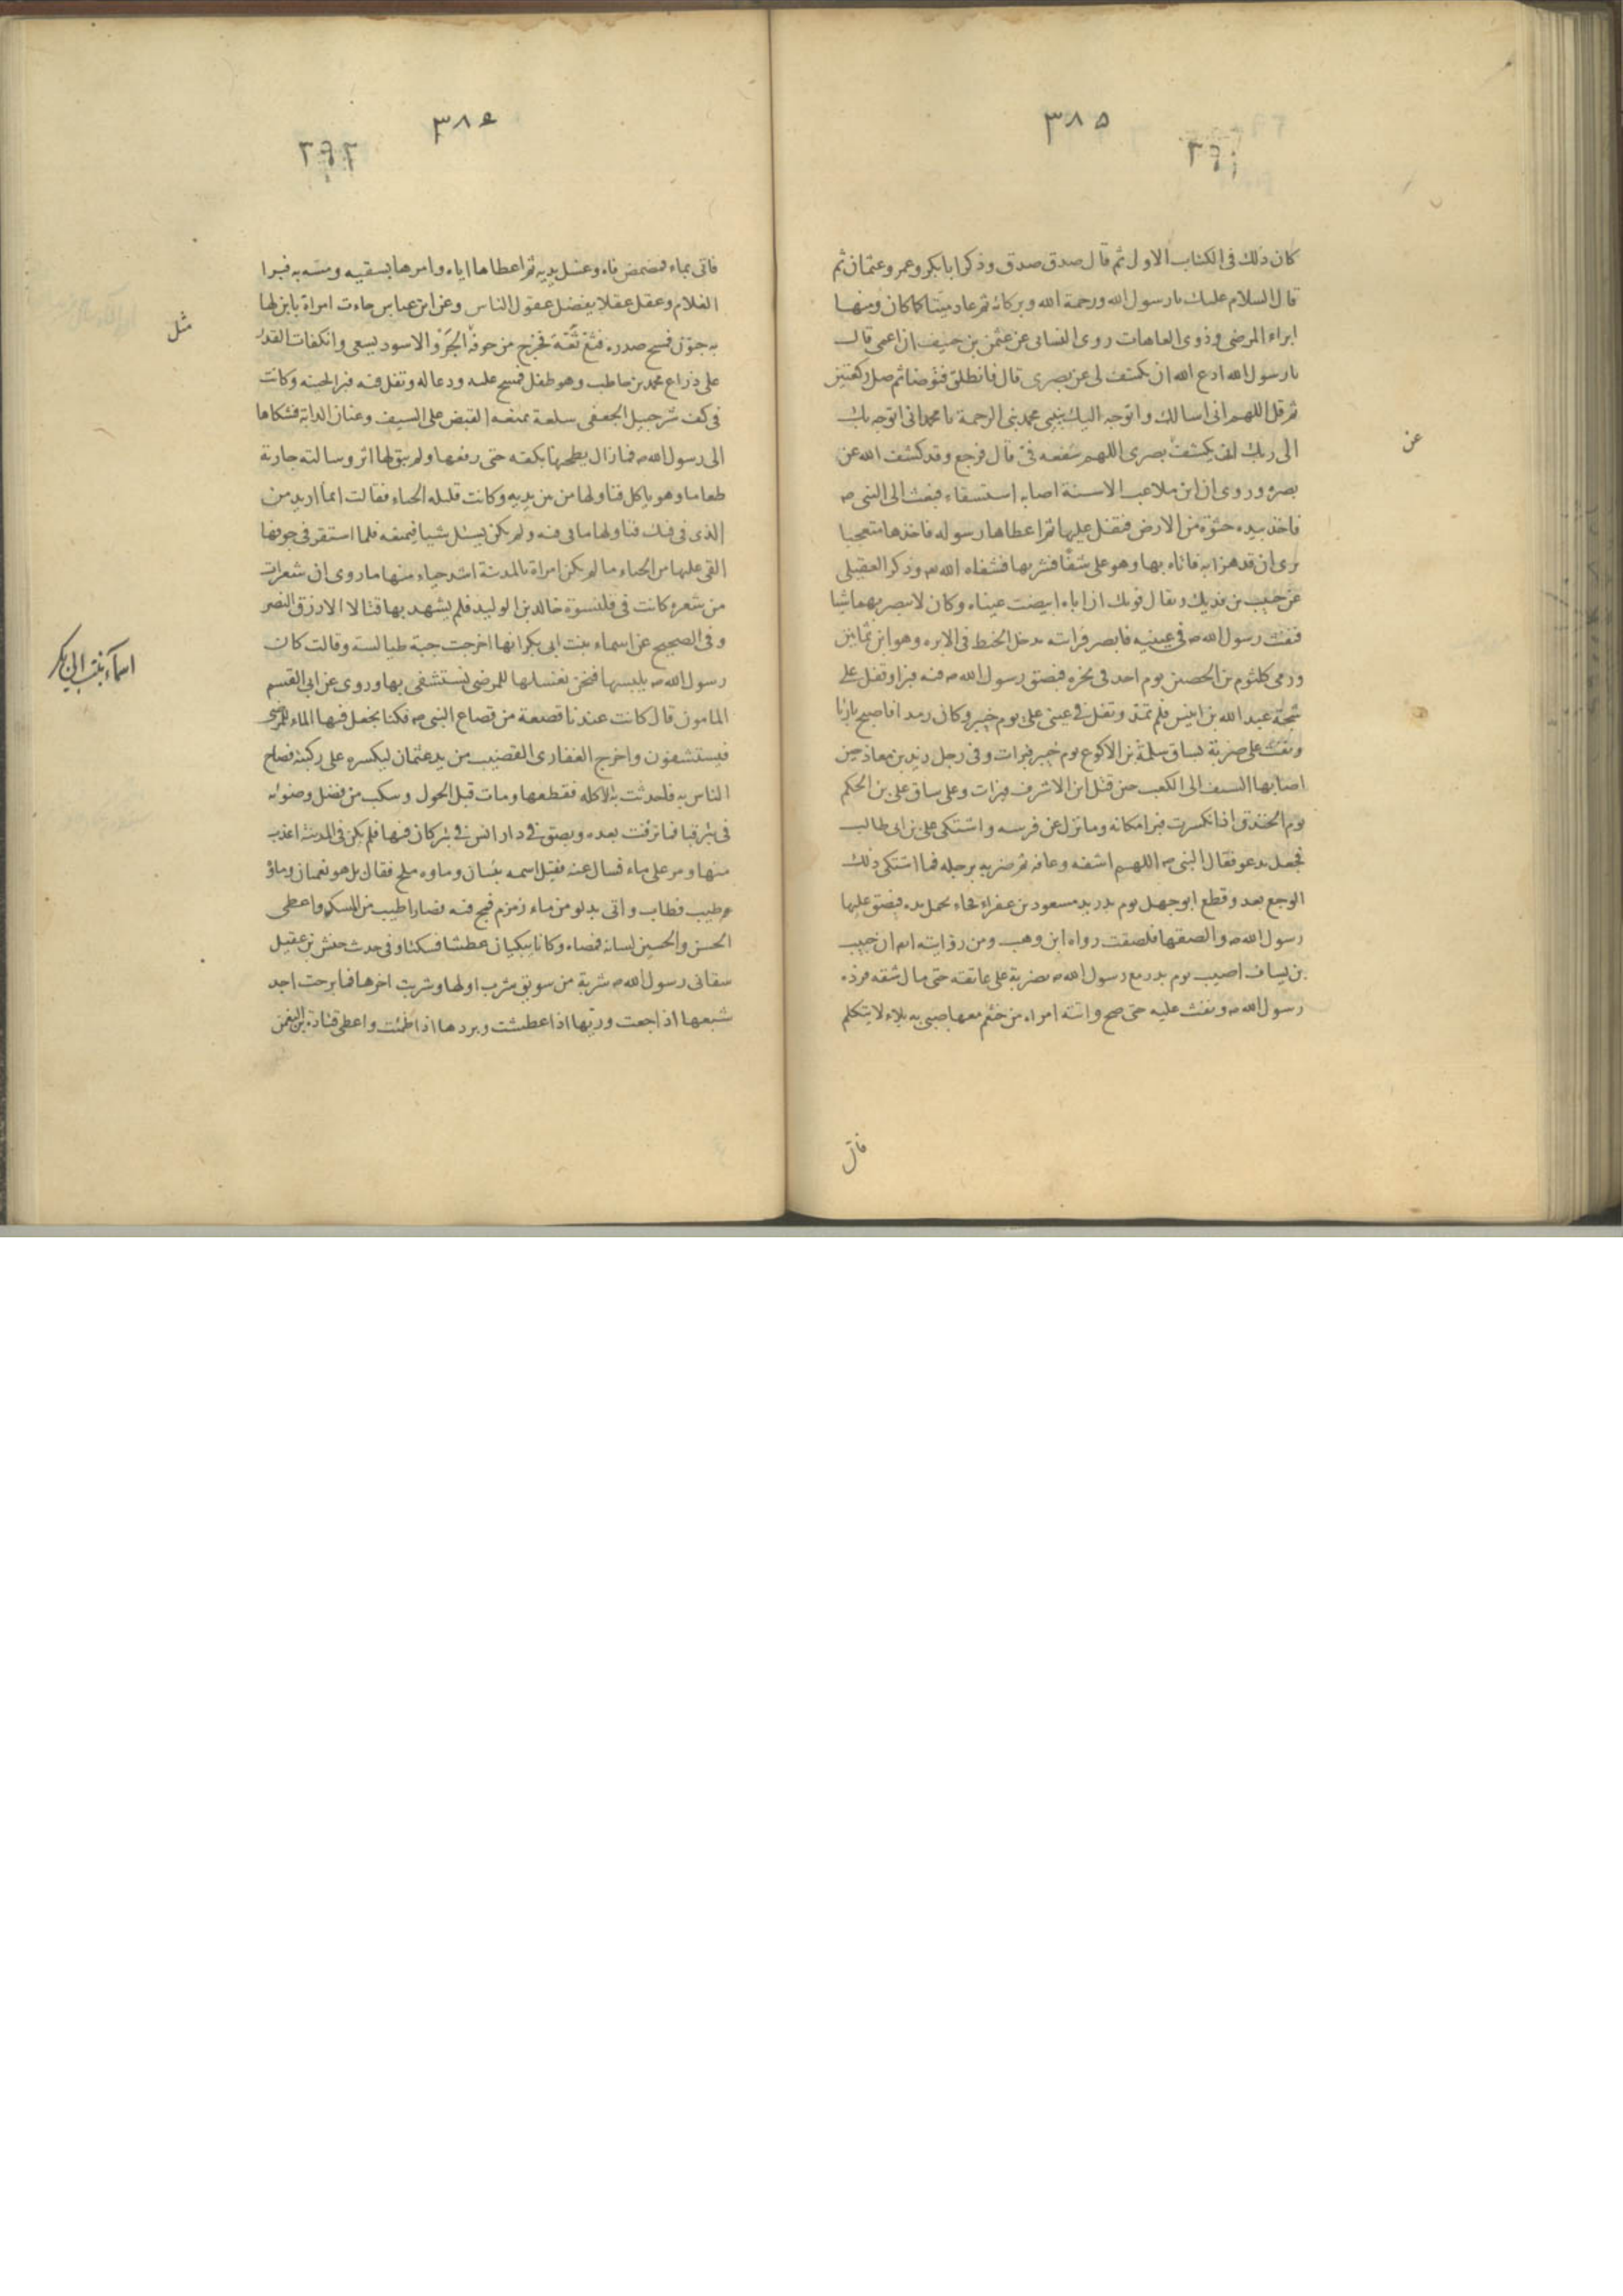 ٣٨٥
كان ذلك فى الكتاب الاول ثم قال صدق صدق وذكر ابا بكر وعمر وعثمان ثم
قال السلام عليك يا رسول الله ورحمة الله وبركاته ثم عاد ميتا كما كان ومنها
ابراء المرضى وذوى العاهات روى النسائى عن عثمن بن حنيف ان اعمى قال
يا رسول الله ادع الله ان يكشف لى عن بصرى قال فانطلق فتوضا ثم صل ركعتين
ثم قل اللهم انى اسالك واتوجه اليك بنبيى محمد نبى الرحمة يا محمد انى اتوجه بك
الى ربك ان يكشف بصرى اللهم شفعه فىّ قال فرجع وقد كشف الله عن
بصره وروى ان ابن ملاعب الاسنة اصابه استسقاء فبعث الى النبى ص
فاخذ بيده حثوة من الارض فتفل عليها ثم اعطاها رسوله فاخذها متعجبا
يرى ان قد هزا به فاتاه بها وهو على شفا فشربها فشفاه الله وذكر العقيلى
عن حبيب بن فديك ويقال فويك ان اباه ابيضت عيناه وكان لا يبصر بهما شيا
فنفث رسول الله ص فى عينيه فابصر فراته يدخل الخيط فى الابره وهو ابن ثمانين
ورمى كلثوم بن الحصين يوم احد فى نحره فبصق رسول الله ص فيه فبرا وتفل على
شجة عبد الله بن انيس فلم تمد وتفل فى عينى على يوم خيبر وكان رمدا فاصبح بارئا
ونفث على ضربة بساق سلمة بن الاكوع يوم خيبر فبرات وفى رجل زيد بن معاذ حين
اصابها السيف الى الكعب حين قتل ابن الاشرف فبرات وعلى ساق على بن الحكم
يوم الخندق اذ انكسرت فبرا مكانه وما نزل عن فرسه واشتكى على بن ابى طالب
فجعل يدعو فقال النبى ص اللهم اشفه وعافه ثم ضربه برجله فما اشتكى ذلك
الوجع بعد وقطع ابو جهل يوم بدر يد مسعود بن عفراء فجاء يحمل يده فبصق عليها
رسول الله ص والصقها فلصقت رواه ابن وهب ومن روايته ان خبيب
بن يساف اصيب يوم بدر مع رسول الله ص بضربة على عاتقه حتى مال شقه فرده
رسول الله ص ونفث عليه حتى صح واتته امراه من خثعم معها صبى به بلاء لا يتكلم
عن
فاتى
٣٨٦
فاتى بماء فمضمض فاه وغسل يديه ثم اعطاها اياه وامرها بسقيه ومسه به فبرا
الغلام وعقل عقلا يفضل عقول الناس وعن ابن عباس جاءت امراة بابن لها
به جنون فمسح صدره فثع ثعّة فخرج من جوفه الجرو الاسود يسعى وانكفات القدر
على ذراع محمد بن حاطب وهو طفل فمسح عليه ودعا له وتفل فيه فبرا لحينه وكانت
فى كف شرحبيل الجعفى سلعة تمنعه القبض على السيف وعنان الدابة فشكاها
الى رسول الله ص فما زال يطحنها بكفه حتى رفعها ولم يبق لها اثر وسالته جارية
طعاما وهو ياكل فناولها من بين يديه وكانت قليله الحياء فقالت انما اريد من
الذى فى فيك فناولها ما فى فيه ولم يكن يسئل شيا فيمنعه فلما استقر فى جوفها
القى عليها من الحياء ما لم يكن امراة بالمدينة اشد حياء منها ما روى ان شعرات
من شعره كانت فى قلنسوة خالد بن الوليد فلم يشهد بها قتالا الا رزق النصر
وفى الصحيح عن اسماء بنت ابى بكر انها اخرجت جبة طيالسة وقالت كان
رسول الله ص يلبسها فنحن نغسلها للمرضى نستشفى بها وروى عن ابى القسم
المامون قال كانت عندنا قصعة من قصاع النبى ص فكنا نجعل فيها الماء للمرضى
فيستشفون واخرج الغفارى القضيب من يد عثمان ليكسره على ركبته فصاح
الناس به فاحدثت به الاكله فقطعها ومات قبل الحول وسكب من فضل وضوئه
فى بئر قبا فما نزفت بعده وبصق فى دار انس فى بئر كان فيها فلم يكن فى المدينة اعذب
منها ومر على ماء فسال عنه فقيل اسمه بيسان وماوه ملح فقال بل هو نعمان وماؤ
ه طيب فطاب واتى بدلو من ماء زمزم فمج فيه فصار اطيب من المسك واعطى
الحسن والحسين لسانه فمصاه وكانا يبكيان عطشا فسكتا وفى حديث حنش بن عقيل
سقانى رسول الله ص شربة من سويق شرب اولها وشربت اخرها فما برحت اجد
شبعها اذا جعت وريّها اذا عطشت وبردها اذا ظمئت واعطى قتادة بن النعمن
مثل
اسماء بنت ابى بكر